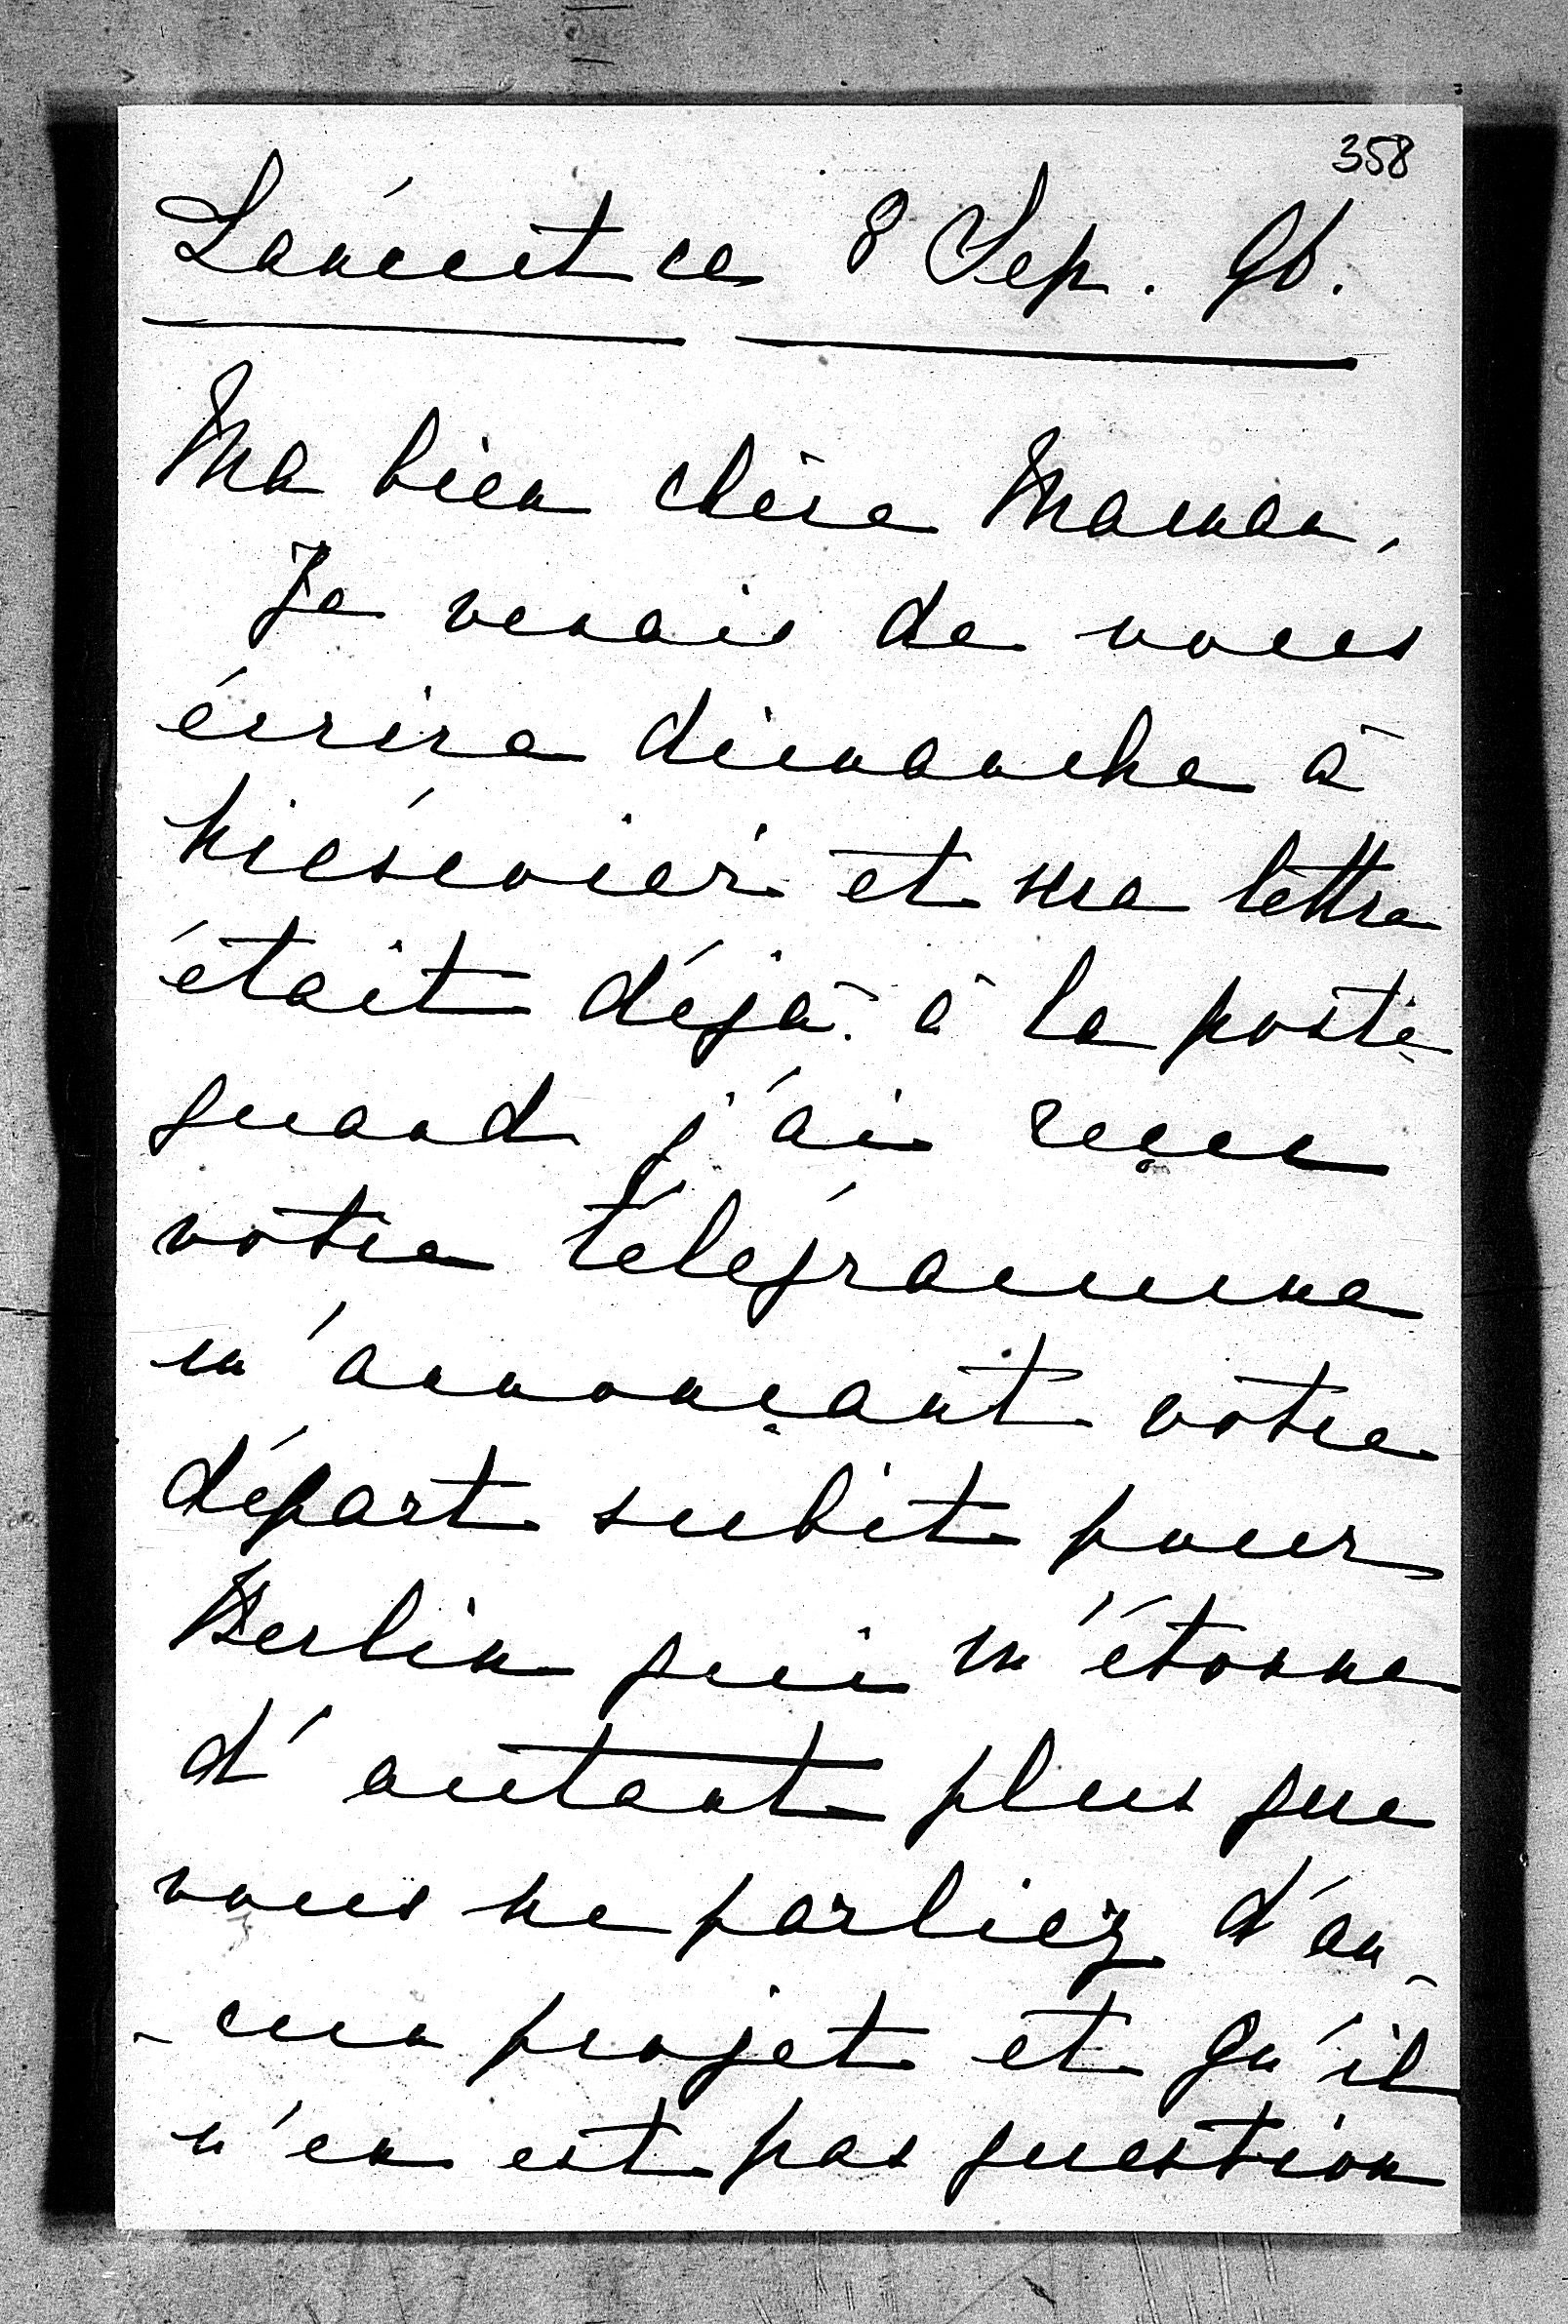 358
Lancut ce 8 Sep. 96.
Ma bien chère Maman,
Je venais de vous
écrire dimanche à
Nieświeź et ma lettre
était déjà à la poste
quand j'ai reçu
votre télégramme
m'annonçant votre
départ subit pour
Berlin qui m'étonne
d'autant plus que
vous ne parliez d'au-
-cun projet et qu'il
n'en est pas question